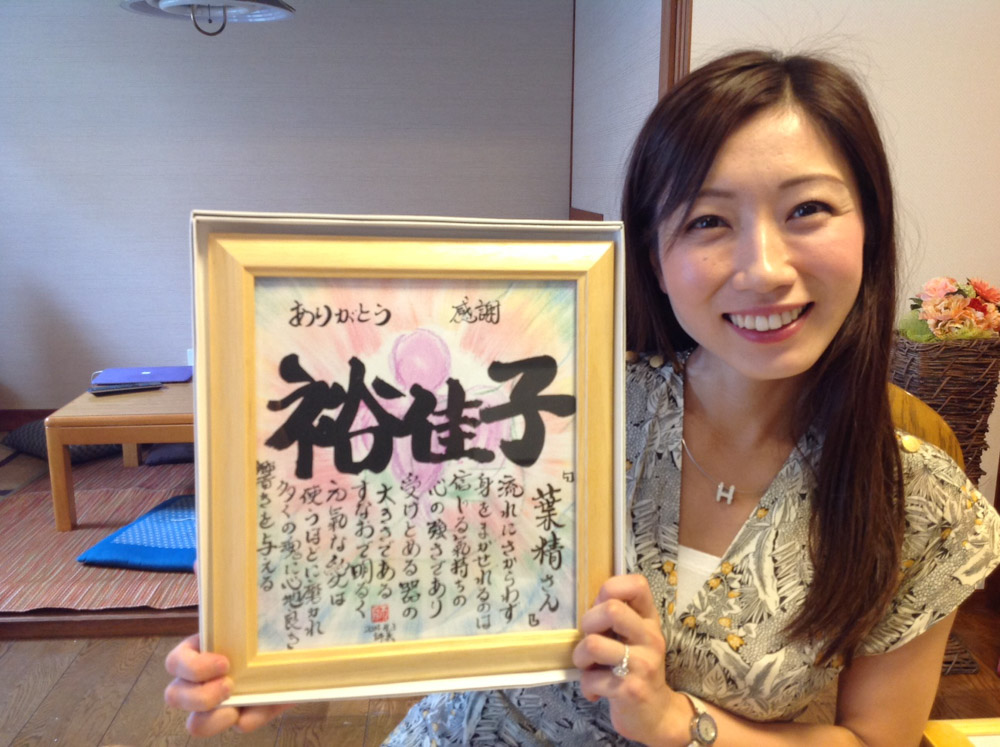 ありがとう 感謝
裕佳子
「葉精さん」
流れにさからわず
身をまかせれるのは
信じる氣持ちの
心の強さであり
受けとめる器の
大きさである
すなおで明るく
元氣な姿は
使うほどに磨かれ
多くの に心地良き
響きを与える
H